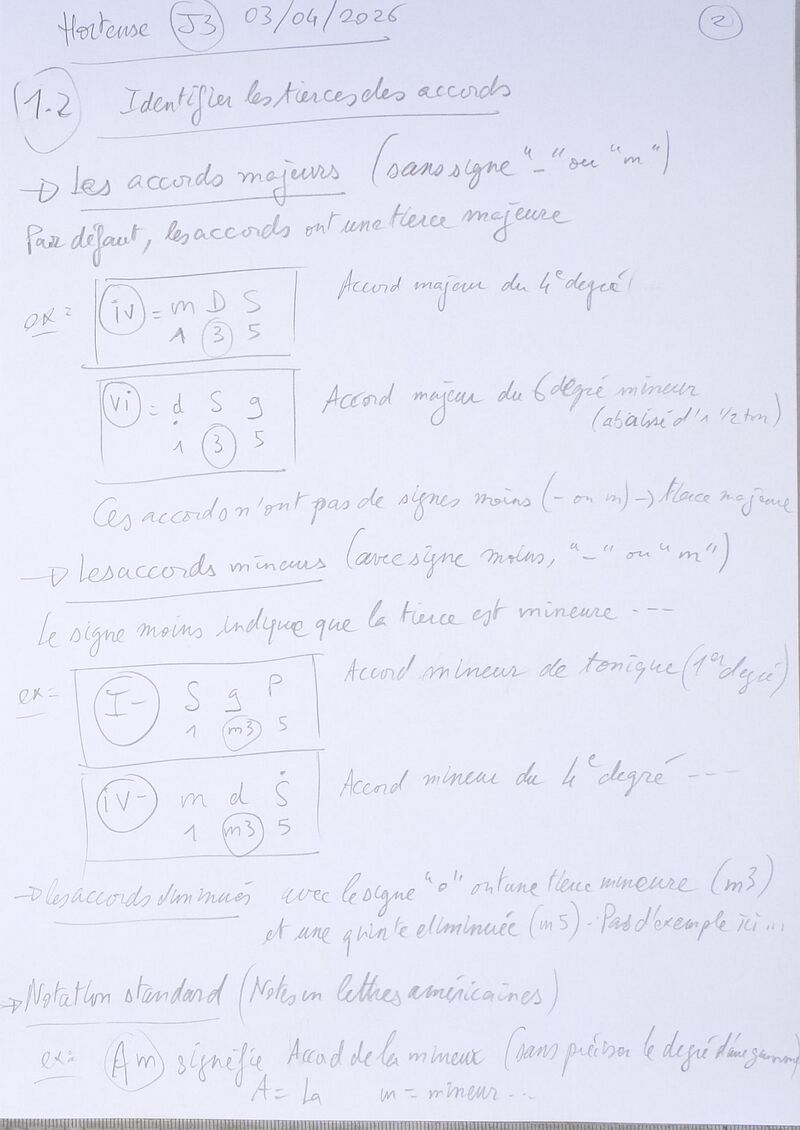 Hortense J3 03/04/2026 2
1.2 Identifier les tierces des accords
→ Les accords majeurs (sans signe "-" ou "m")
Par défaut, les accords ont une tierce majeure
ex: iv = m D S Accord majeur du 4e degré
1 3 5
vi = d S g Accord majeur du 6 degré mineur
1 3 5 (abaissé d'1 1/2 ton)
Ces accords n'ont pas de signes moins (- ou m) → tierce majeure
→ Les accords mineurs (avec signe moins, "-" ou "m")
Le signe moins indique que la tierce est mineure ---
ex= I- S g P Accord mineur de tonique (1er degré)
1 m3 5
iv- m d Ṡ Accord mineur du 4e degré ---
1 m3 5
→ les accords diminués avec le signe "o" ont une tierce mineure (m3)
et une quinte diminuée (m5). Pas d'exemple ici...
→ Notation standard (Notes en lettres américaines)
ex: Am signifie Accord de la mineur (sans préciser le degré d'une gamme)
A = La m = mineur...